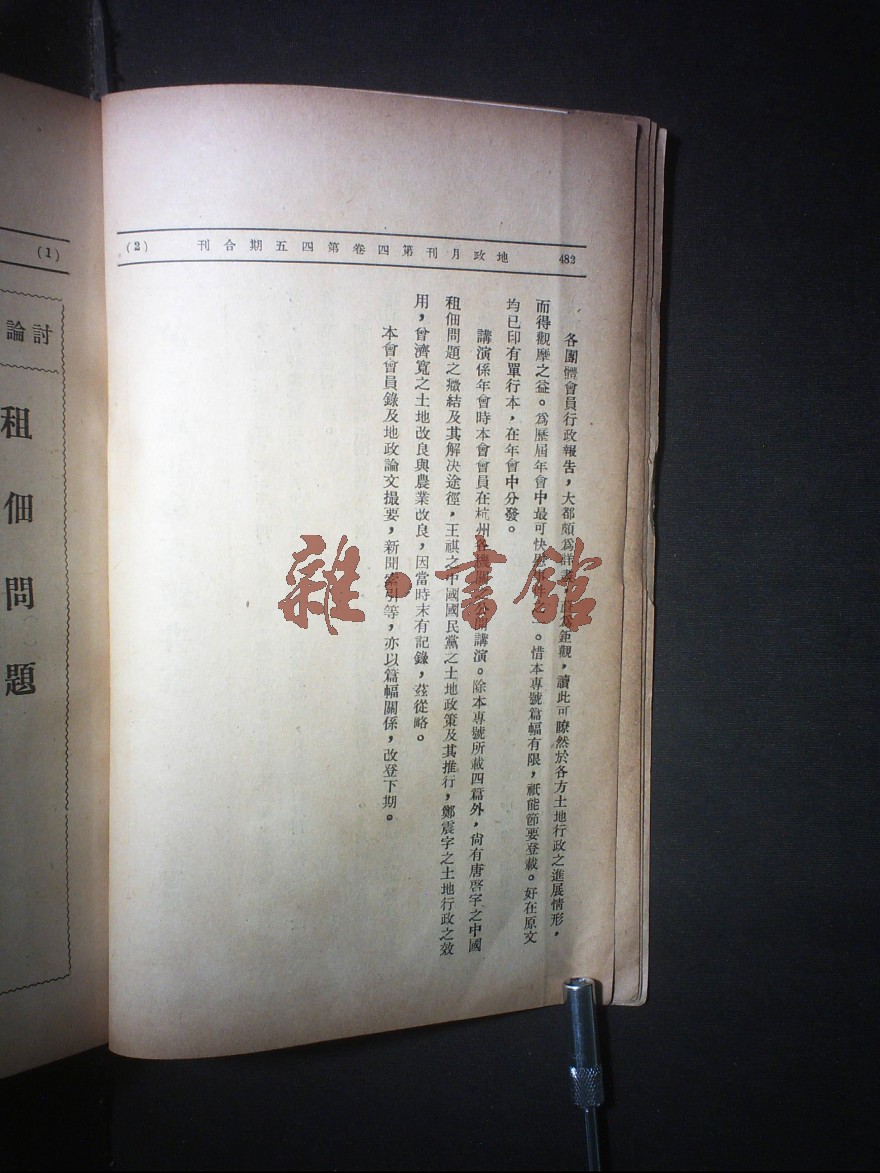 482
地政月刊第四卷第四五期合刊
(2)
各團體會員行政報告，大都頗為詳盡，蔚為鉅觀，讀此可瞭然於各方土地行政之進展情形，
而得觀摩之益。為歷屆年會中最可快慰事件之一。惜本專號篇幅有限，祇能節要登載。好在原文
均已印有單行本，在年會中分發。
講演係年會時本會會員在杭州各機關之公開講演。除本專號所載四篇外，尙有唐啓宇之中國
租佃問題之癥結及其解決途徑，王祺之中國國民黨之土地政策及其推行，鄭震宇之土地行政之效
用，曾濟寬之土地改良與農業改良，因當時末有記錄，茲從略。
本會會員錄及地政論文撮要，新聞索引等，亦以篇幅關係，改登下期。
雜·書館
(1)
討論
租佃問題